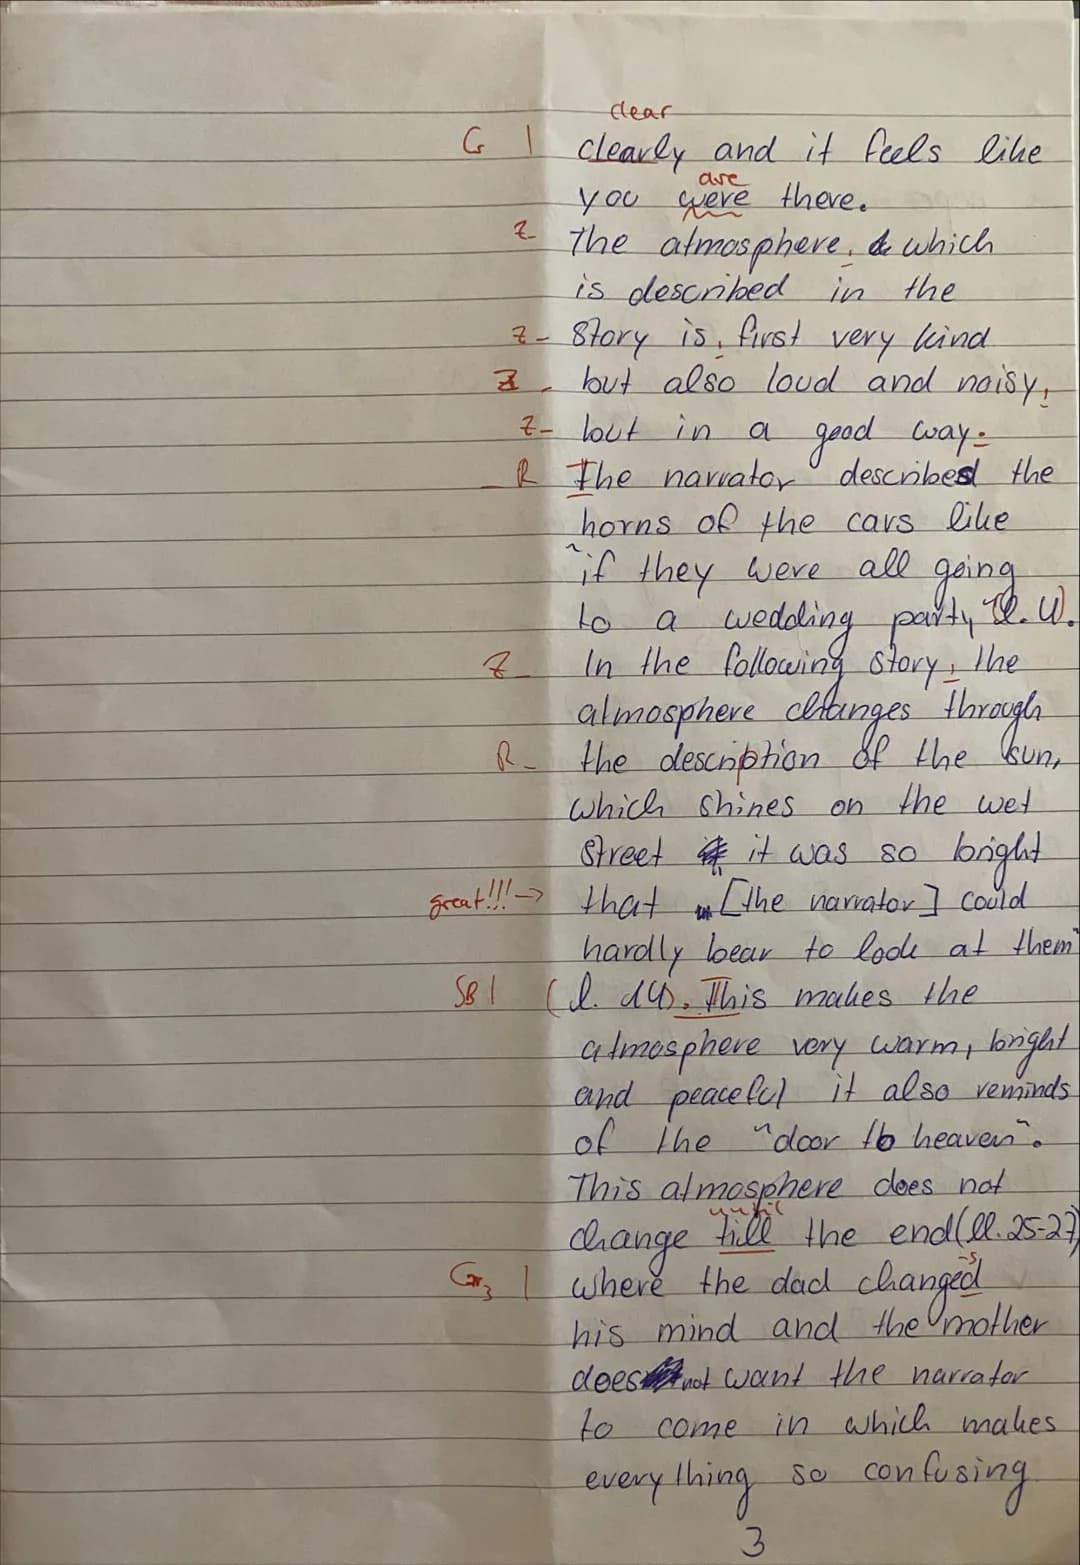 clear
G | clearly and it feels like
are
you were there.
Z- The atmosphere, which
is described in the
Z- story is, first very kind
Z- but also loud and noisy,
Z- but in a good way.
R The narrator described the
horns of the cars like
"if they were all going
to a wedding party" (l. 4).
Z- In the following story, the
atmosphere changes through
R- the description of the sun,
which shines on the wet
street it was so bright
great!!! → that "[the narrator] could
hardly bear to look at them"
SB | (l. 14). This makes the
atmosphere very warm, bright
and peaceful it also reminds
of the "door to heaven".
This atmosphere does not
until
change till the end (ll. 25-27)
-s
Gr3 | where the dad changed
his mind and the mother
does not want the narrator
to come in which makes
everything so confusing
3